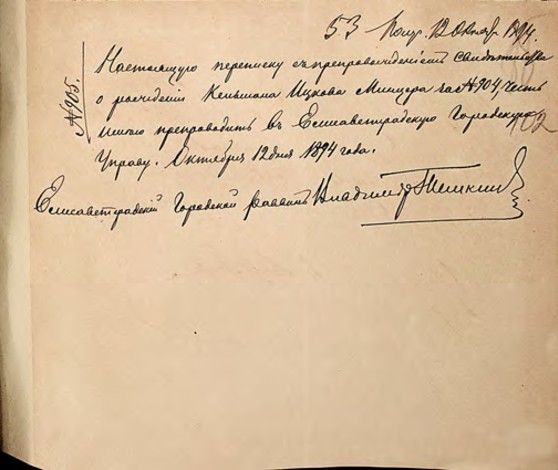 53 Полу. 12 Октябр. 1894.
№ 905.
Настоящую переписку съ препровожденіемъ свидѣтельства
о рожденіи Кельмана Ицкова Мицера за № 904, честь
имѣю препроводить въ Елисаветградскую Городскую
Управу. Октября 12 дня 1894 года.
Елисаветградскій Городской Раввинъ Владимір Темкин